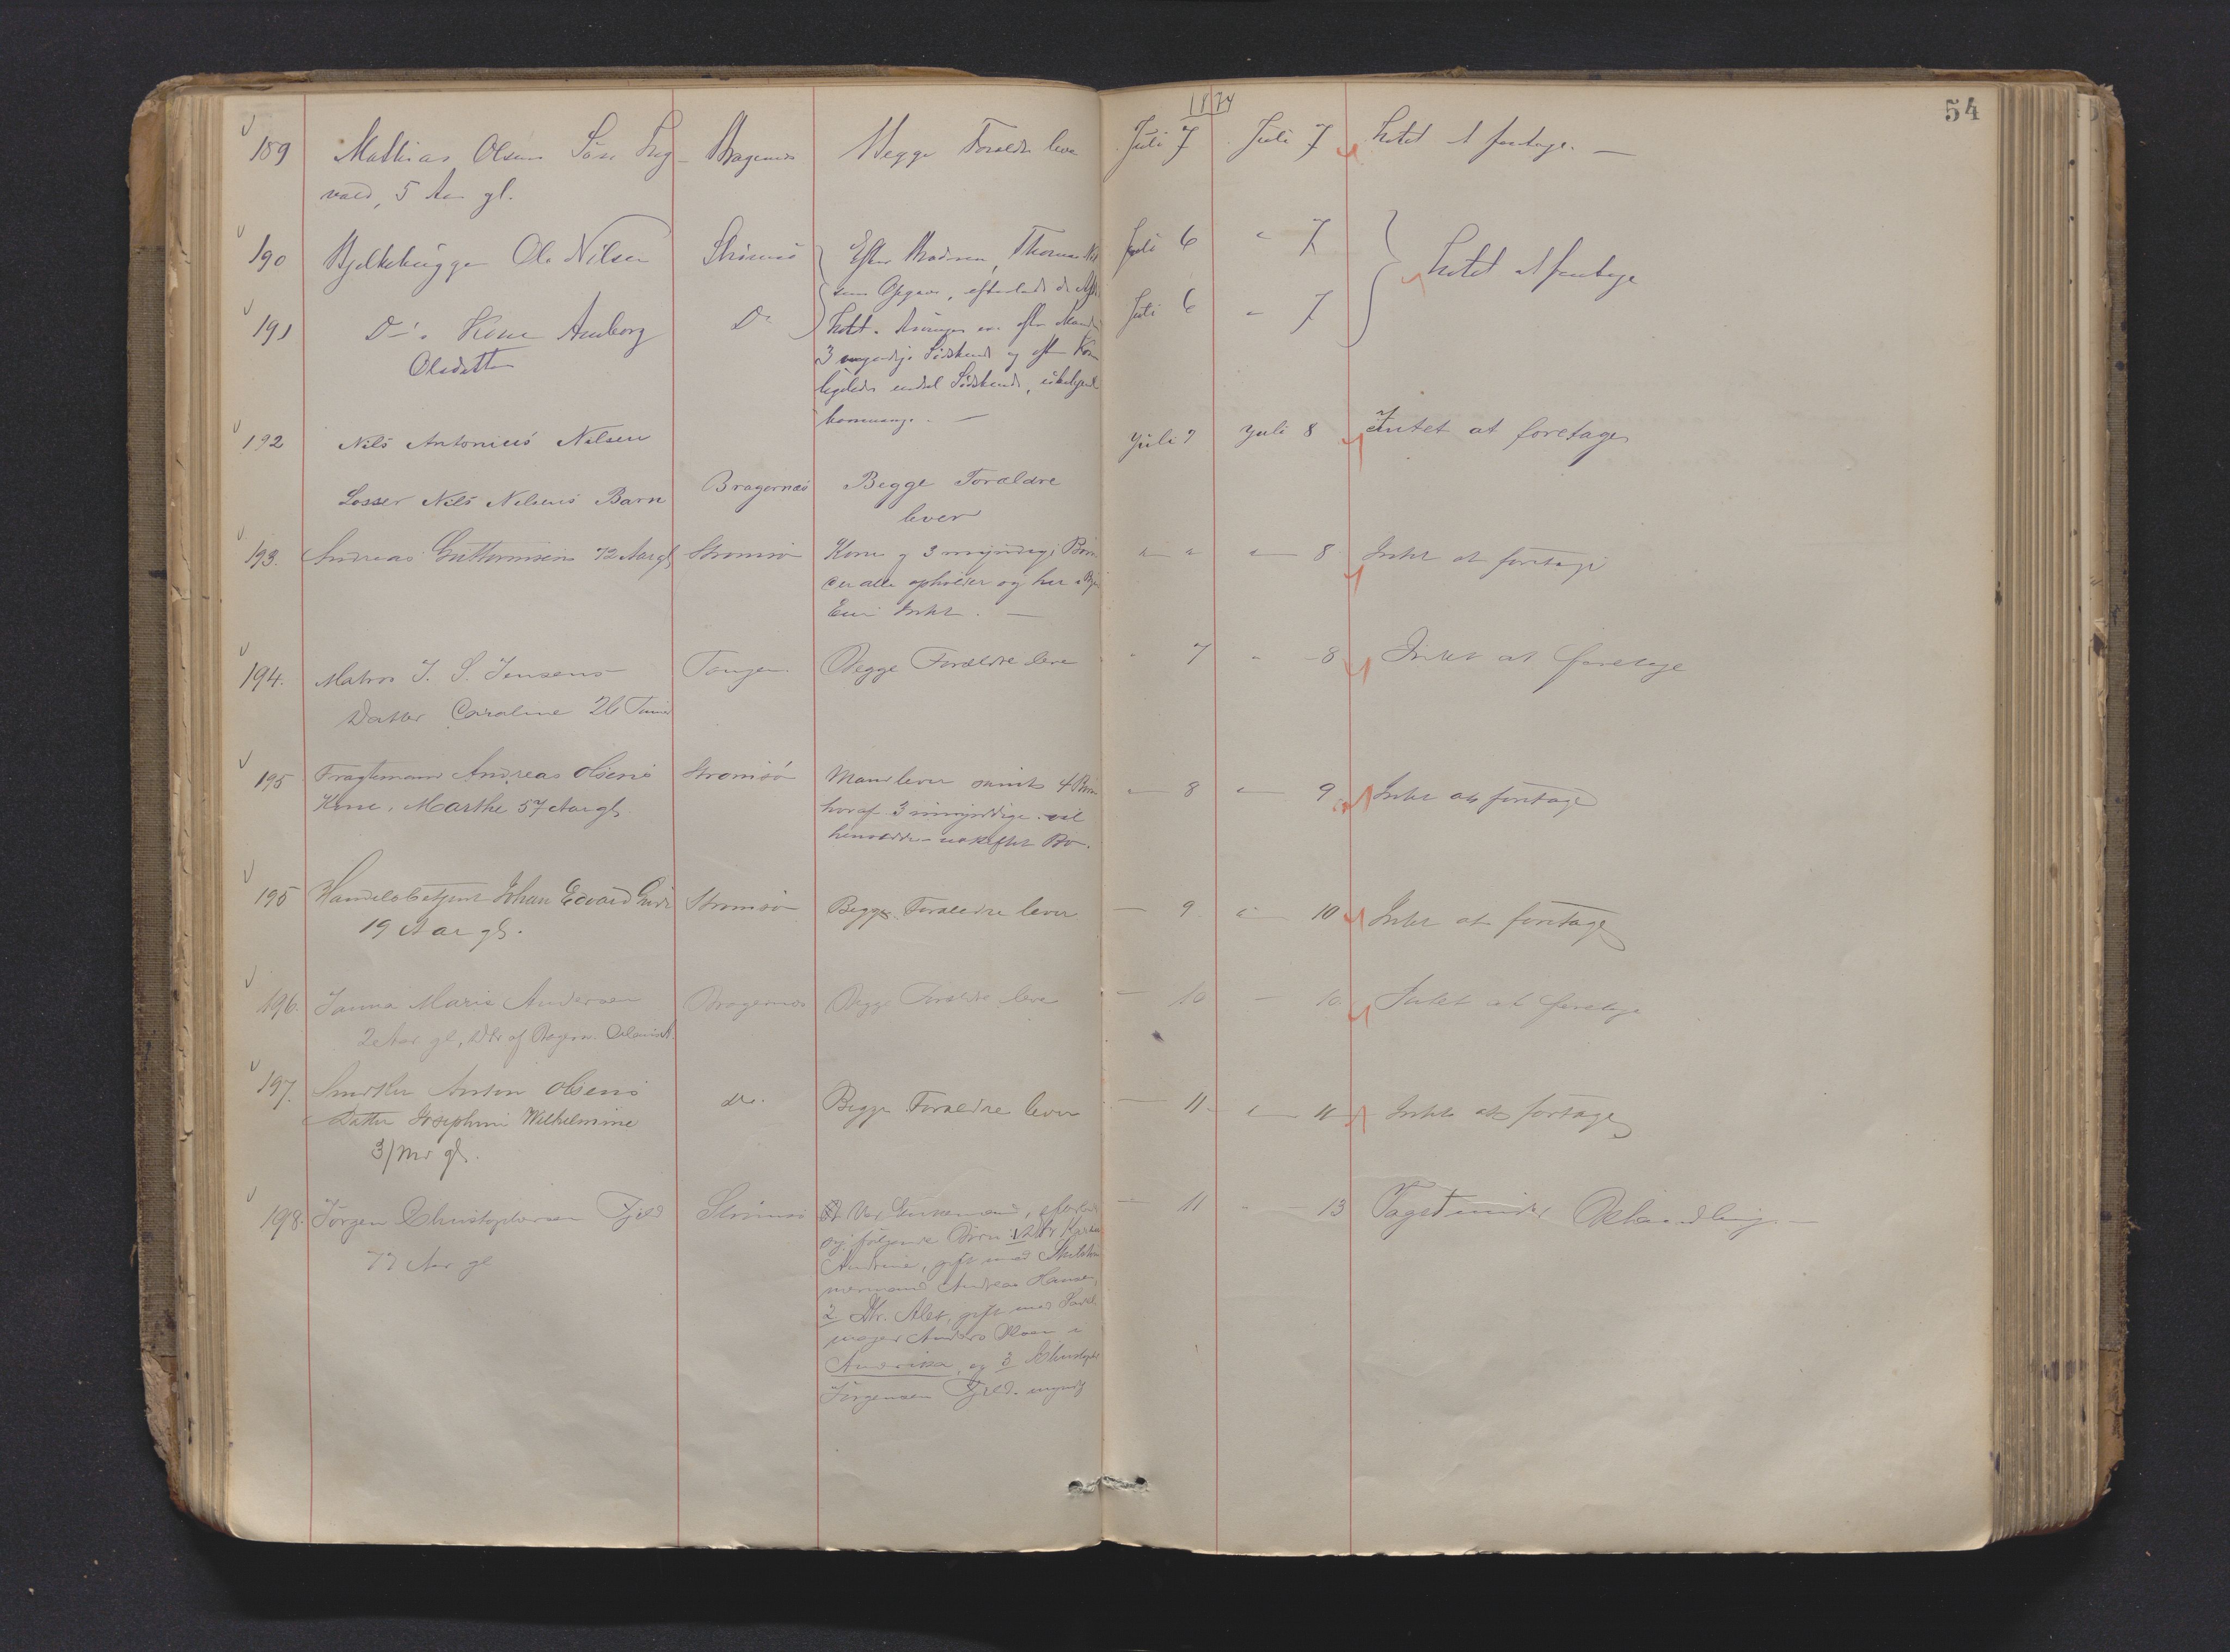 1874
54
189 Mathias Olsens Søn Sig- Bragernes Begge Forældre leve Juli 7 Juli 7 Intet at foretage. —
vald, 5 Aar gl.
190 Bjelkehugger Ole Nilsen Strömsö Efter Broderen, Thomas Nil- Juli 6 " 7 Intet at foretage
sens Opgave, efterlod de Afd.
191 Do. Kone Anborg Do Intet. Arvinger er efter Manden Juli 6 " 7
Olsdatter 3 myndige Södskende og efter Konen
ligeledes endel Södskende,
192 Nils Antonius Nilsen Juli 7 Juli 8 Intet at foretage
Losser Nils Nilsens Barn Bragernæs Begge Forældre
lever
193. Andreas Guttormsen 72 Aar gl Strömsö Kone og 3 myndige Börn " " " 8 Intet at foretage
der alle opholder sig her i Byen
Eier Intet. —
194. Matros J. S. Jensens Tangen. Begge Forældre leve " 7 " 8 Intet at foretage
Datter Caroline 26 Timer
195 Fragtemand Andreas Olsens Strømsö Mand lever samt 4 Børn " 8 " 9 Intet at foretage
Kone, Marthe 57 Aar gl. hvoraf 3 umyndige. vil
hensidde i uskiftet Bo.
195 Handelsbetjent Johan Edvard Strømsö Begge Forældre lever — 9 " 10 Intet at foretage
19 Aar gl.
196. Janna Marie Andersen Bragernes Begge Forældre leve — 10 — 10. Intet at foretage
2 Aar gl, Dtr af
197. Snedker Anton Olsens do. Begge Forældre lever — 11 " 11 Intet at foretage
Datter Josephine Wilhelmine
3/Mdr gl.
198. Jörgen Christophersen Fjeld Strömsö Var Enkemand, efterlod — 11 — 13 Taget under Behandling —
77 Aar gl sig følgende Börn: 1 Dtr
Andrine, gift med
Andreas Hansen,
2 Dtr. Alet, gift med
Anders Moen i
Amerika, og 3 Christopher
Jörgensen Fjeld. myndig